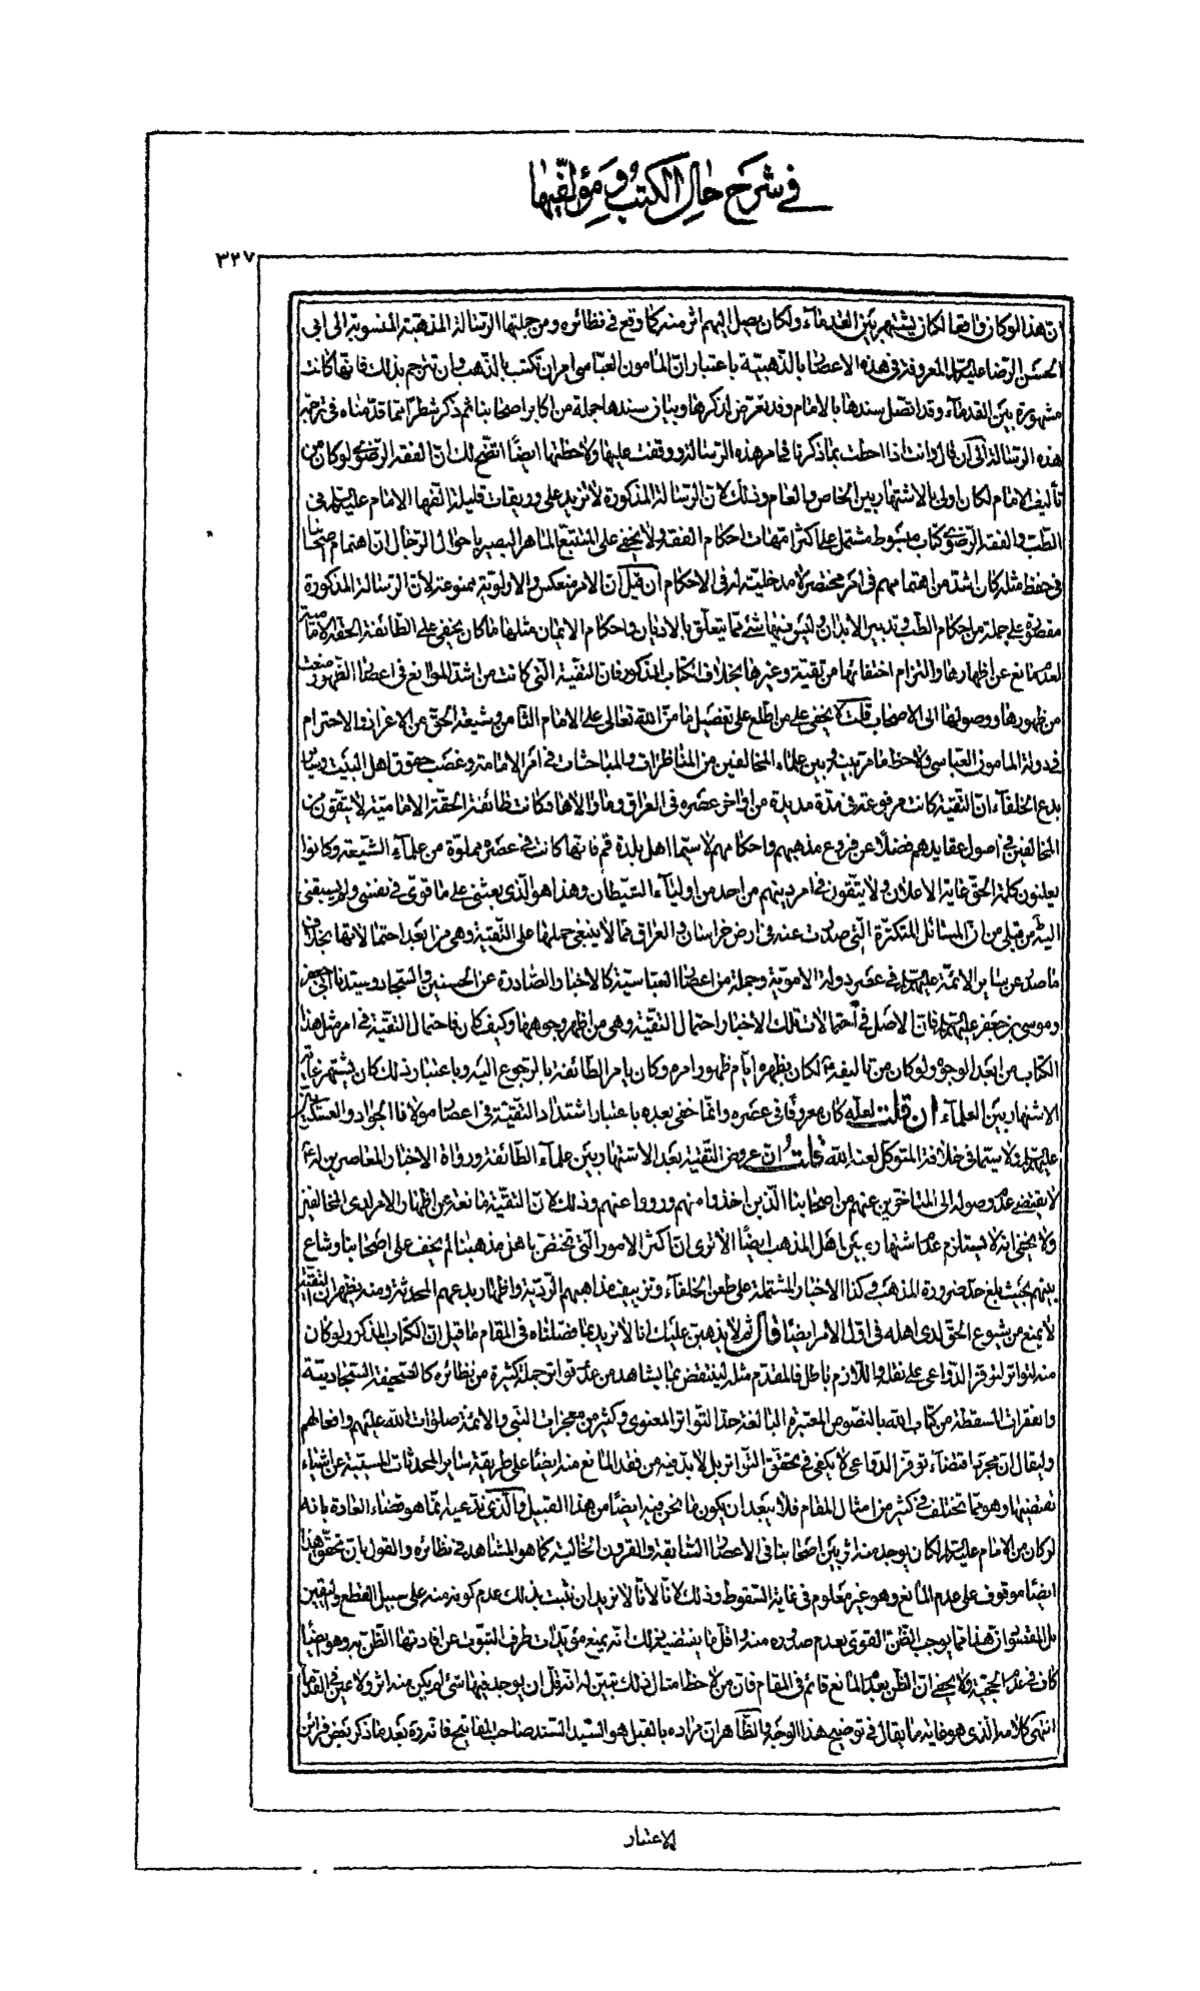 في شرح حال الكتب و مؤلفيها
٣٢٧
ان هذا لو كان واقعا لكان يشتهر بين القدماء ولكان يصل اليهم اثر منه كما وقع في نظائره ومن جملتها الرسالة المذهبة المنسوبة الى ابي
الحسن الرضا عليه السلام المعروفة في هذه الاعصار بالذهبية باعتبار ان المامون العباسي امر ان تكتب بالذهب وان تترجم بذلك فانها كانت
مشهورة بين القدماء وقد اتصل سندها بالامام وقد تعرض لذكرها وبيان سندها جملة من اكابر اصحابنا ثم ذكر شطرا مما قدمناه في ترجمة
هذه الرسالة الى ان قال وانت اذا احطت بما ذكرنا في امر هذه الرسالة ووقفت عليها ولاحظتها ايضا اتضح لك ان الفقه الرضوي لو كان من
تأليف الامام لكان اولى بالاشتهار بين الخاص والعام وذلك لان الرسالة المذكورة لا تزيد على وريقات قليلة الفها الامام عليه السلام في
الطب والفقه الرضوي كتاب مبسوط مشتمل على اكثر امهات احكام الفقه ولا يخفى على المتتبع الماهر البصير باحوال الرجال ان اهتمام اصحابنا
في حفظ مثله كان اشد من اهتمامهم في امر مختصر لا مدخلية له في الاحكام ان قيل ان الامر منعكس والاولوية ممنوعة لان الرسالة المذكورة
مقصورة على جملة من احكام الطب وتدبير الابدان وليس فيها شئ مما يتعلق بالاديان واحكام الايمان مثلها ما كان يخفى على الطائفة الحقة الامامية
لعدم مانع عن اظهارها والتزام اختفائها من تقية وغيرها بخلاف الكتاب المذكور فان التقية التي كانت من اشد الموانع في اعصار الظهور منعت
من ظهورها ووصولها الى الاصحاب قلت لا يخفى على من اطلع على تفصيل ما من الله تعالى على الامام الثامن وشيعة الحق من الاعزاز والاحترام
في دولة المامون العباسي ولاحظ ما مر بينه وبين علماء المخالفين من المناظرات والمباحثات في امر الامامة وغصب حقوق اهل البيت وبيان
بدع الخلفاء ان التقية كانت مرفوعة في مدة مديدة من اواخر عصره في العراق وما والاها فكانت طائفة الحقة الامامية لا يتقون من
المخالفين في اصول عقايدهم فضلا عن فروع مذهبهم واحكامهم لا سيما اهل بلدة قم فانها كانت في عصره مملوة من علماء الشيعة وكانوا
يعلنون كلمة الحق غاية الاعلان ولا يتقون في امر دينهم من احد من اولياء الشيطان وهذا هو الذي بعثني على ما قوي في نفسي ولا يسبقني
اليه من قبلي من ان المسائل المتكثرة التي صدرت عنه في ارض خراسان والعراق مما لا ينبغي حملها على التقية وهي من ابعد احتمالاتها بخلاف
ما صدر عن سائر الائمة عليهم السلام في عصر دولة الاموية وجملة من اعصار العباسية كالاخبار الصادرة عن الحسنين والسجاد وسيدنا ابي جعفر
وموسى بن جعفر عليهم السلام فان الاصل في احتمالات تلك الاخبار احتمال التقية وهي من اظهر وجوهها وكيف كان فاحتمال التقية في امر مثل هذا
الكتاب من ابعد الوجوه ولو كان من تاليفه لكان يظهر ايام ظهور امره وكان يامر الطائفة بالرجوع اليه وباعتبار ذلك كان يشتهر غاية
الاشتهار بين العلماء ان قلت لعله كان معروفا في عصره وانما خفي بعده باعتبار اشتداد التقية في اعصار مولانا الجواد والعسكريين
عليهم السلام لا سيما في خلافة المتوكل لعنه الله قلت ان عروض التقية بعد الاشتهار بين علماء الطائفة ورواة الاخبار المعاصرين له
لا يقتضي عدم وصوله الى المتاخرين عنهم من اصحابنا الذين اخذوا منهم ورووا عنهم وذلك لان التقية مانعة عن اظهار الامر لدى المخالفين
ولا يخفى انه لا يستلزم عدم اشتهاره بين اهل المذهب ايضا الا ترى ان اكثر الامور التي تختص باهل مذهبنا لم يخف على اصحابنا وشاع
بينهم بحيث بلغ حد ضرورة المذهب وكذا الاخبار المشتملة على طعن الخلفاء وتزييف مذاهبهم الردية واظهار بدعهم المحدثة ومنه يظهر ان التقية
لا يمنع من شيوع الحق لدى اهله في اول الامر ايضا قال ثم لا يذهبن عليك انا لا نريد بما فصلناه في المقام ما قيل ان الكتاب المذكور لو كان
منه لتواتر لتوفر الدواعي على نقله واللازم باطل فالمقدم مثله لينتقض بما يشاهد من عدم تواتر جملة كثيرة من نظائره كالصحيفة السجادية
والفقرات السقطة من كتاب الله بالنصوص المعتبرة البالغة حد التواتر المعنوي وكثير من معجزات النبي والائمة صلوات الله عليهم وافعالهم
وليقال ان مجرد اقتضاء توفر الدواعي لا يكفي في تحقق التواتر بل لا بد فيه من فقد المانع منه ايضا على طريقة سائر المحدثات المسببة عن اشياء
تقتضيها وهو مما تختلف في كثير من امثال المقام فلا يبعد ان يكون ما نحن فيه ايضا من هذا القبيل والذي ندعيه انما هو قضاء العادة بانه
لو كان من الامام عليه السلام لكان يوجد منه اثر بين اصحابنا في الاعصار السابقة والقرون الخالية كما هو المشاهد في نظائره والقول بان تحقق هذا
ايضا موقوف على عدم المانع وهو غير معلوم في غاية السقوط وذلك لانا لا نريد ان نثبت بذلك عدم كونه منه على سبيل القطع واليقين
بل المقصود ان هذا مما يوجب الظن القوي بعدم صدوره منه واقل ما يقتضيه ذلك انه يمنع مؤيدات طرف الثبوت عن افادتها الظن به وهو ايضا
كاف في عدم الحجية ولا يخفى ان الظن بعدم المانع قائم في المقام فان من لاحظ امثال ذلك تبين له انه قل ان يوجد فيها شئ لم يكن منه اثر ولا عين في القدماء
انتهى كلامه الذي هو غاية ما يقال في توضيح هذا الوجه والظاهر ان مراده بالقيل هو السيد السند صاحب المفاتيح فانه ره بعد ما ذكر بعض قرائن
الاعتبار